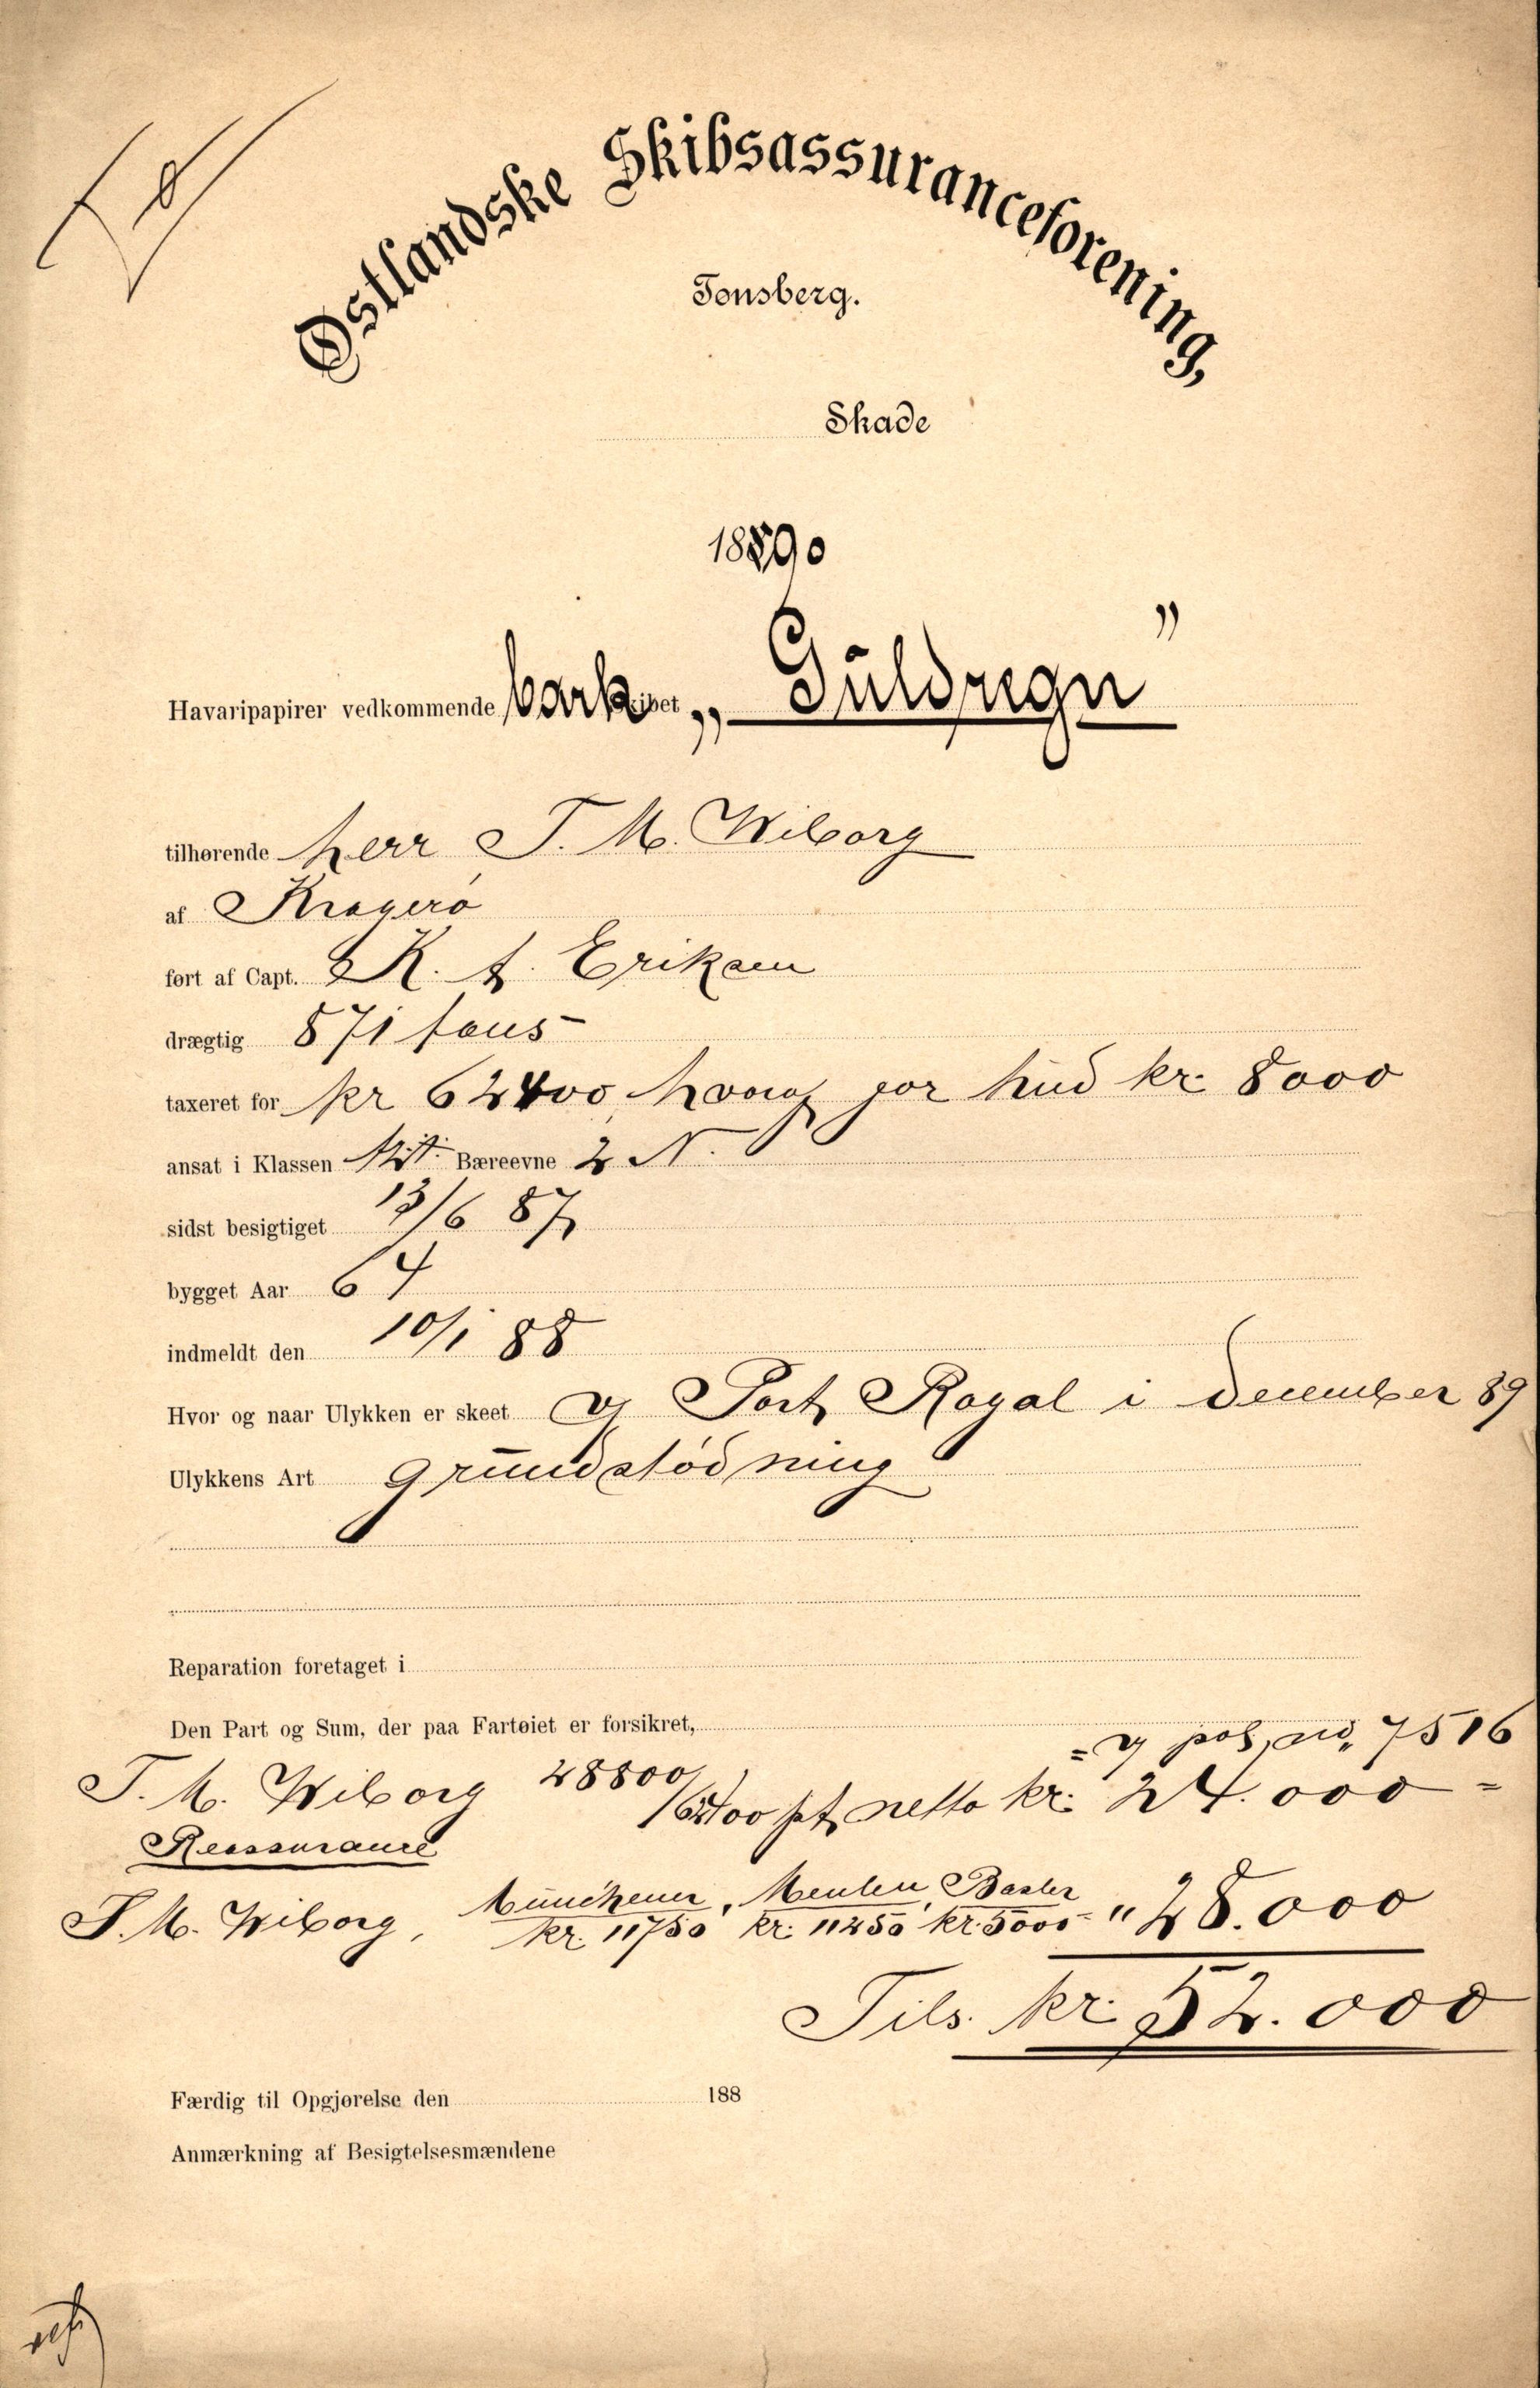 Østlandske Skibsassuranceforening,
Tønsberg.
Skade
1890
Havaripapirer vedkommende bark „Güldregn”
tilhørende herr T. M. Wiborg
af Kragerø
ført af Capt. K. A. Eriksen
drægtig 571 tons
taxeret for kr 62400 hvoraf for hud kr. 8000
ansat i Klassen Bæreevne 2 N.
sidst besigtiget 13/6 87
bygget Aar 64
indmeldt den 10/1 88
Hvor og naar Ulykken er skeet v/ Port Royal i december 89
Ulykkens Art grundstødning
Reparation foretaget i
Den Part og Sum, der paa Fartøiet er forsikret,
= v/ pol. no. 7516
T. M. Wiborg 28800/62400 pt. netto kr: 24.000 =
Reassurance
T. M. Wiborg, Münchener, Kr. 11750 Kr: 11250 Basler Kr. 5000 " 28.000
Tils. kr. 52.000
Færdig til Opgjørelse den 188
Anmærkning af Besigtelsesmændene